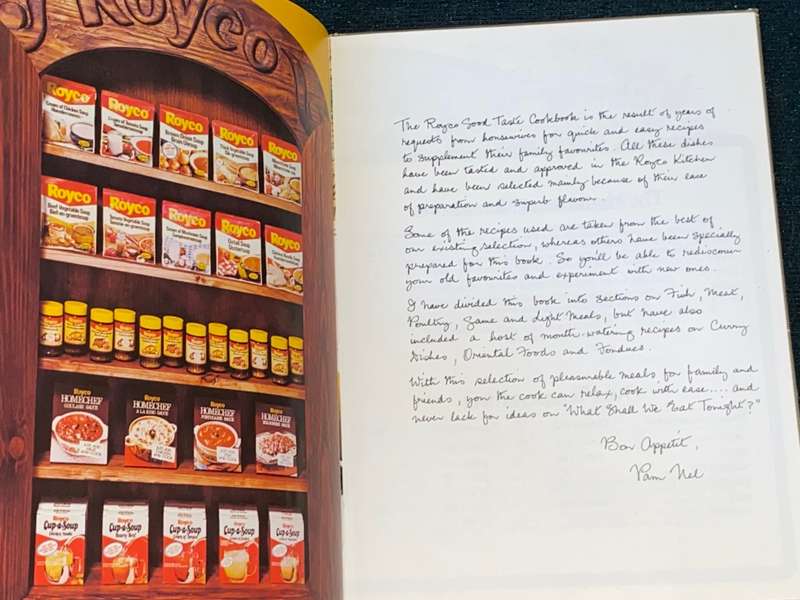 Royco
Royco
Royco
Royco
Royco
Royco
Cream of Chicken Soup
Cream of Tomato Soup
Brown Onion Soup
Thick Vegetable Soup
Royco
Royco
Royco
Royco
Royco
Beef Vegetable Soup
Tomato Vegetable Soup
Cream of Mushroom Soup
Oxtail Soup
Royco
Royco
Royco
Royco
HOMECHEF
HOMECHEF
HOMECHEF
HOMECHEF
GOULASH SAUCE
A LA KING SAUCE
Royco
Royco
Royco
Royco
Royco
Cup-a-Soup
Cup-a-Soup
Cup-a-Soup
Cup-a-Soup
Cup-a-Soup
The Royco Good Taste Cookbook is the result of years of
requests from housewives for quick and easy recipes
to supplement their family favourites. All these dishes
have been tasted and approved in the Royco Kitchen
and have been selected mainly because of their ease
of preparation and superb flavour.
Some of the recipes used are taken from the best of
our existing selection, whereas others have been specially
prepared for this book. So you'll be able to rediscover
your old favourites and experiment with new ones.
I have divided this book into sections on Fish, Meat,
Poultry, Game and Light Meals, but have also
included a host of mouth-watering recipes on Curry
Dishes, Oriental Foods and Fondues.
With this selection of pleasurable meals for family and
friends, you the cook can relax, cook with ease.... and
never lack for ideas on "What Shall We Eat Tonight?"
Bon Appetit,
Pam Nel